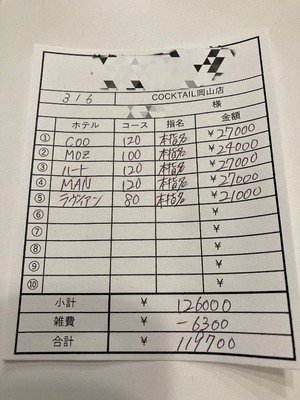 COCKTAIL岡山店
316
ホテル コース 指名 金額
① COO 120 本指名 ¥27000
② MOZ 100 本指名 ¥24000
③ ハート 120 本指名 ¥27000
④ MAN 120 本指名 ¥27000
⑤ ラヴィアン 80 本指名 ¥21000
⑥ ¥
⑦ ¥
⑧ ¥
⑨ ¥
⑩ ¥
小計 ¥ 126000
雑費 ¥ -6300
合計 ¥ 119700